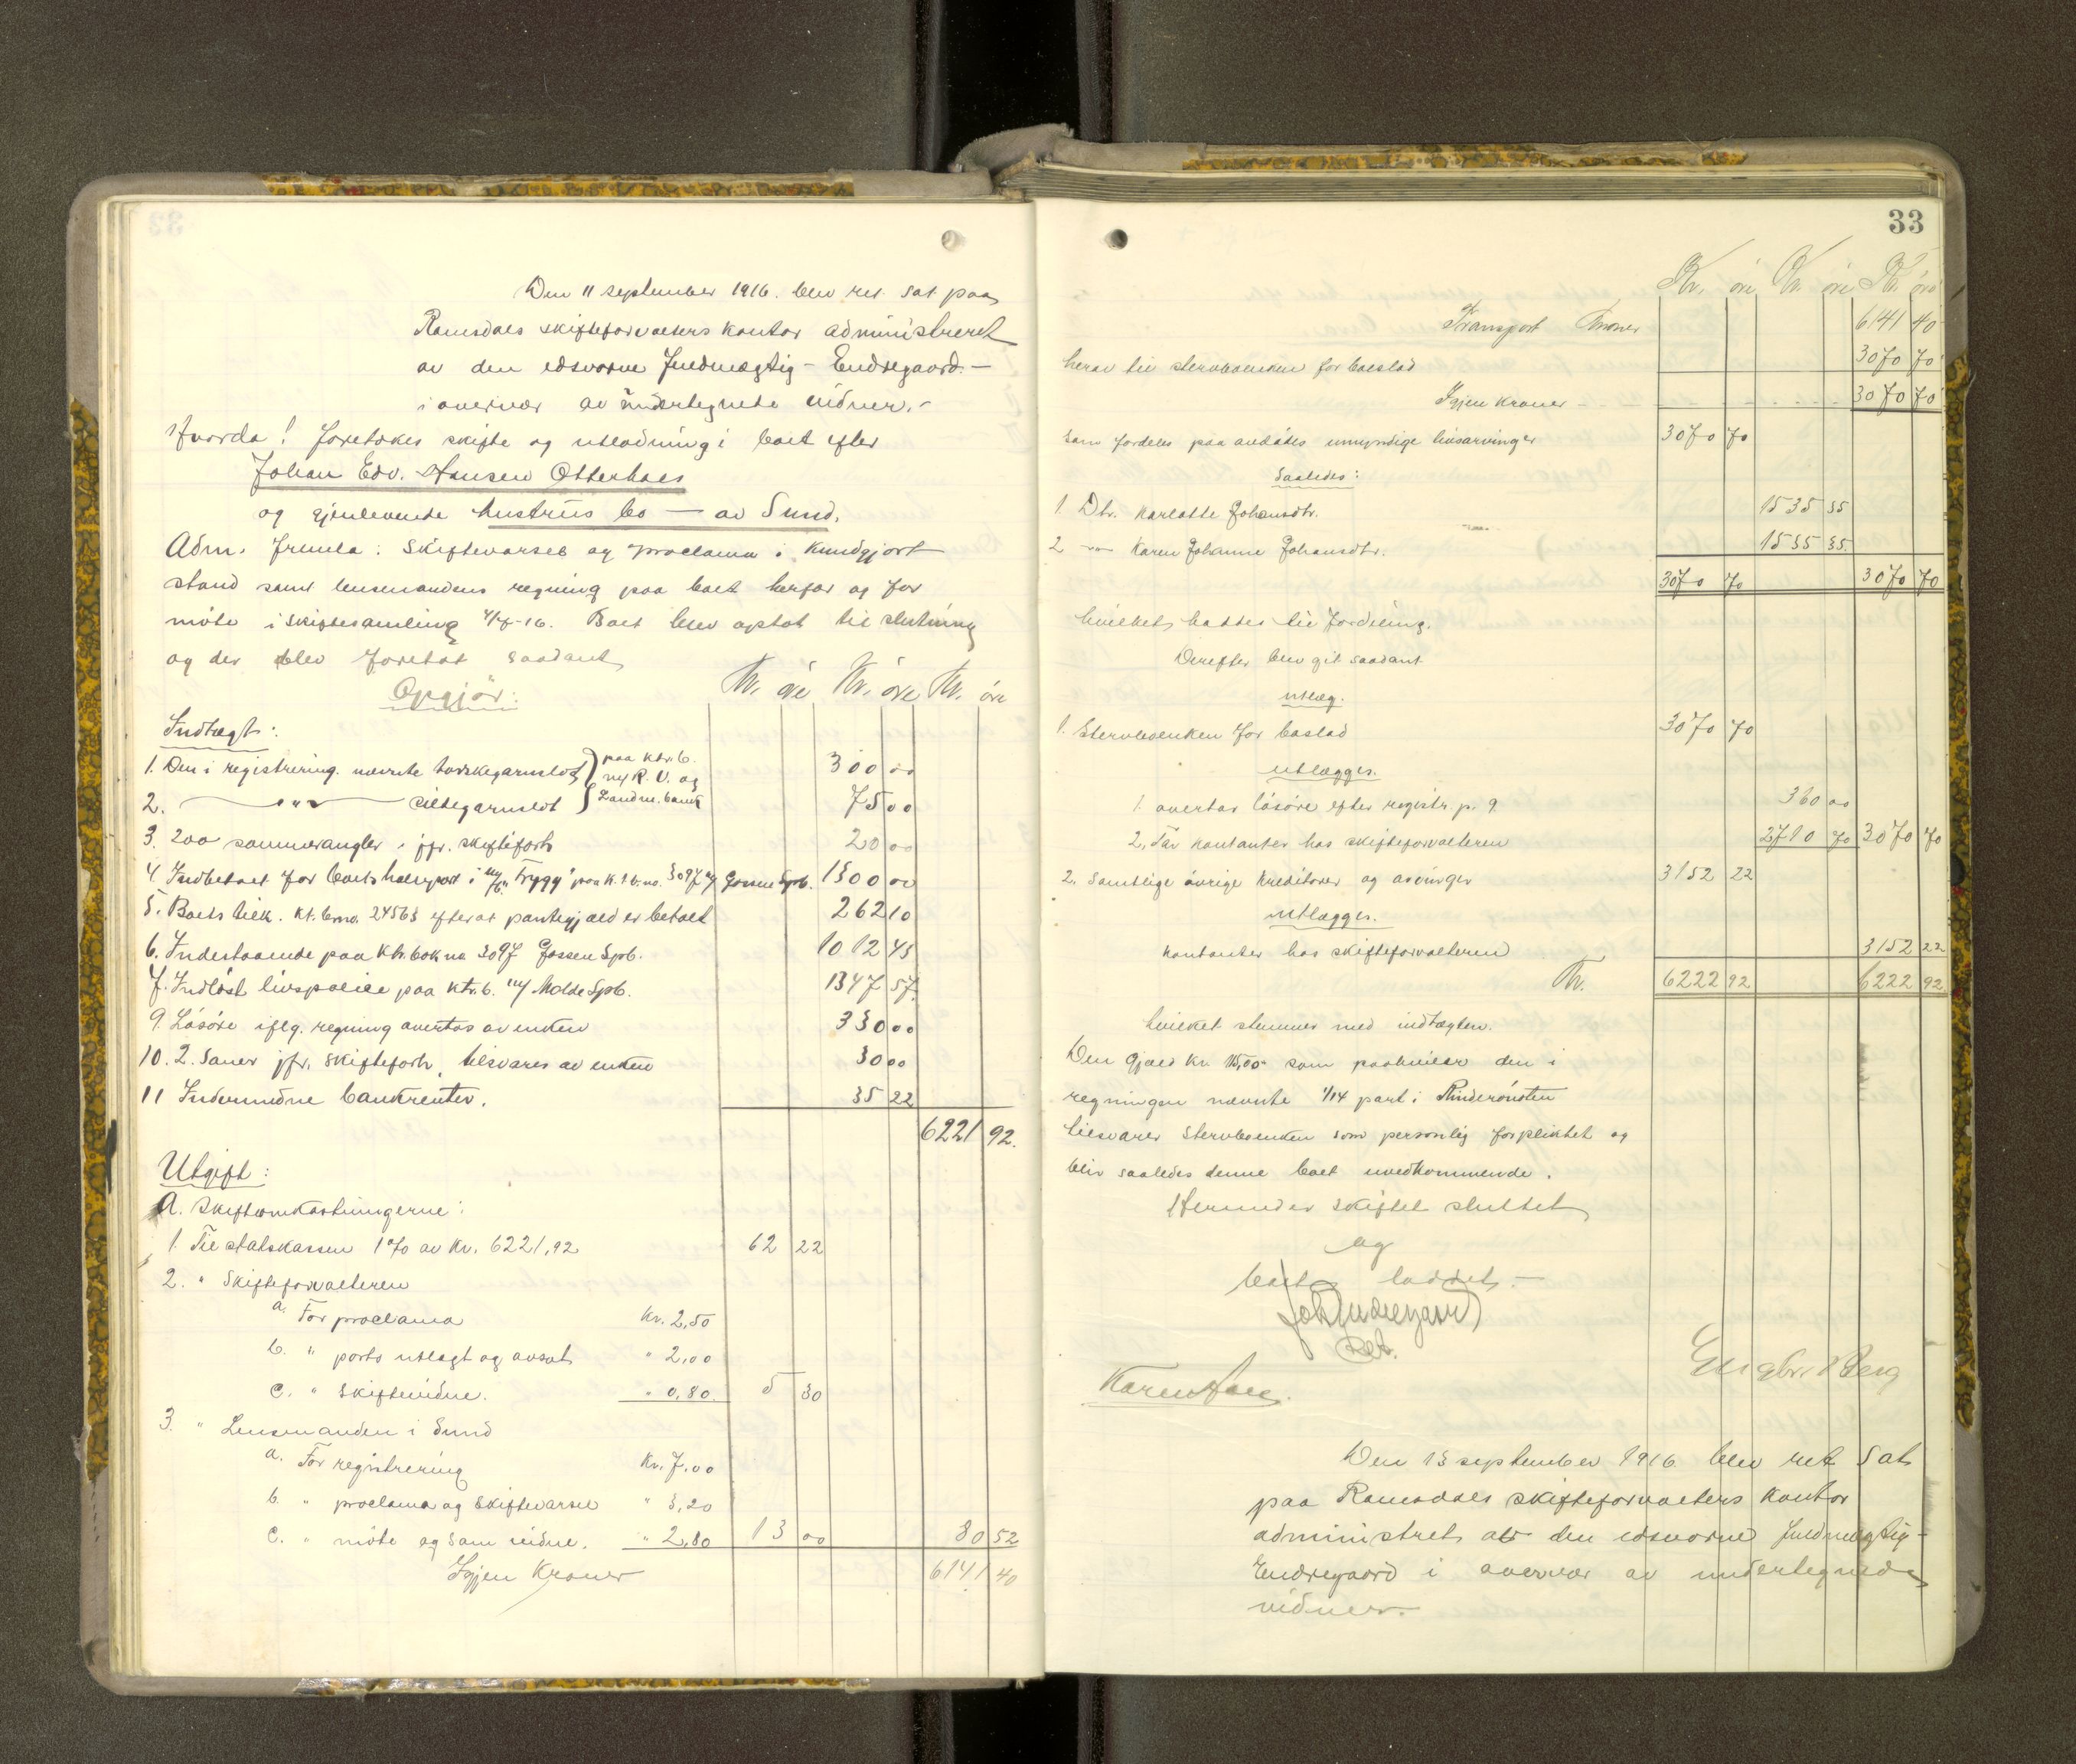 Den 11 september 1916. blev ret sat paa
Romsdals skifteforvalters kontor administreret
av den edsvorne fuldmægtig - Endregaard. -
i overvær av undertegnede vidner. -
Hvorda! foretokes skifte og utlodning i boet efter
Johan Edv. Hansen Otterhals
og gjenlevende hustrus bo — av Sund.
Adm. fremla: Skiftevarsel og proclama i kundgjort
stand samt lensmandens regning paa boet herfor og for
møte i skiftesamling 4/8-16. Boet blev optat til slutning
og der blev foretat saadant
Opgjør: Kr. øre Kr. øre Kr. øre
Indtægt:
1. Den i registrering. nævnte torskegarnslot } paa ktr. b. 300 00
2. —— " —— sildegarnslot } m/ R. V. og Landm. bank 75 00
3. 200 sommerangler i jfr. skifteforh 20 00
4. Indbetalt for boets halvpart i m/k "Trygg" paa k. t b. no. 3097 m/ Gossen Spb. 1500 00
5. Boets tilk. kt. b no. 24563 efterat pantegjæld er betalt 262 10
6. Indestaaende paa ktr. bok no 3097 Gossen Spb. 1012 45
7. Indløst livspolice paa ktr. b. m/ Molde Spb. 1347 57
9. Løsøre iflg. regning overtas av enken 330 00
10. 2. Sauer jfr. skifteforh. tilsvares av enken 30 00
11 Indvundne bankrenter. 35 22
6221 92.
Utgift:
A. Skifteomkostningerne:
1. Til statskassen 1% av kr. 6221,92 62 22
2. " Skifteforvalteren
a. For proclama kr. 2,50
b. " porto utlagt og avsat " 2,00
c. " Skiftevidne. " 0,80. 5 30
3. " Lensmanden i Sund
a. For registrering kr. 7,00
b. " proclama og skiftevarsel " 3,20
c. " møte og som vidne. " 2,80 13 00 80 52
Igjen Kroner 6141 40
33
Kr. øre Kr. øre Kr. øre
Transport Kroner 6141 40
herav til stervboenken for boeslod 3070 70
Igjen Kroner - - - 3070 70
Som fordeles paa avdødes umyndige livsarvinger 3070 70
Saaledes:
1. Dtr. Karlotte Johansdtr. 1535 35
2 —"— Karen Johanne Johansdtr. 1535 35.
3070 70 3070 70
hvilket hadtes til fordeling.
Derefter blev git saadant
utlæg.
1. Stervboenken for boslod 3070 70
utlægges.
1. overtar løsøre efter registr. p. 9 360 00
2. Tar kontanter hos skifteforvalteren 2710 70 3070 70
2. Samtlige øvrige kreditorer og arvinger 3152 22
utlægges.
kontanter hos skifteforvalteren 3152 22
Kr. 6222 92 6222 92.
hvilket stemmer med indtægten.
Den gjæld kr. 115,00 som paahviler den i
regningen nævnte 1/14 part i Rinderønoten
tilsvarer Stervboenken som personlig forpliktet og
blir saaledes denne boet uvedkommende.
Hermed er skiftet sluttet
og
boet loddet. -
Joh Endregaard
Set.
Engbr. Berg
Karen
Den 13 september 1916. blev ret sat
paa Romsdals skifteforvalters kontor
administret av den edsvorne fuldmægtig -
Endregaard i overvær av undertegnede
vidner. -